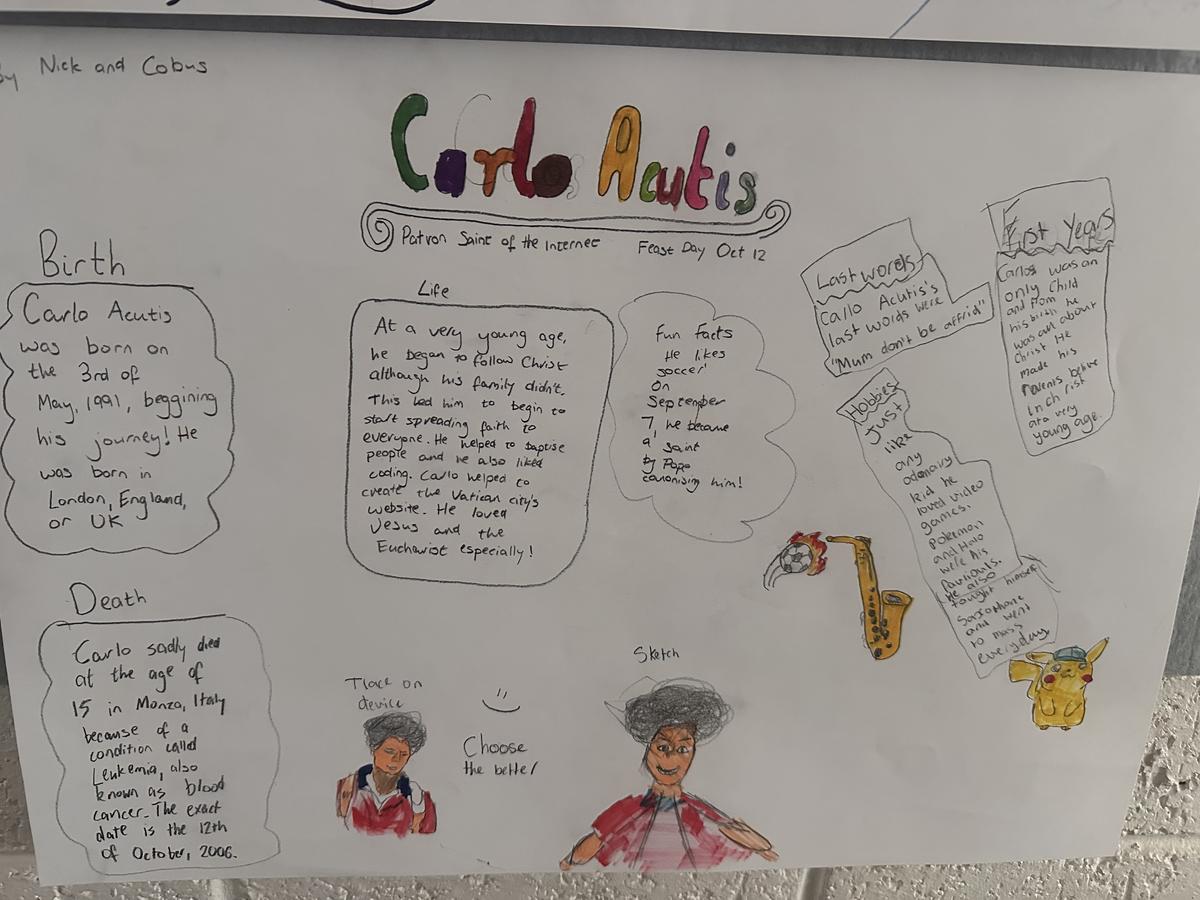 By Nick and Cobus
Carlo Acutis
Patron Saint of the Internet Feast Day Oct 12
Birth
Carlo Acutis
was born on
the 3rd of
May, 1991, beggining
his journey! He
was born in
London, England,
or UK
Death
Carlo sadly died
at the age of
15 in Monza, Italy
because of a
condition called
Leukemia, also
known as blood
cancer. The exact
date is the 12th
of October, 2006.
Life
At a very young age,
he began to follow Christ
although his family didn't.
This led him to begin to
start spreading faith to
everyone. He helped to baptise
people and he also liked
coding. Carlo helped to
create the Vatican city's
website. He loved
Jesus and the
Eucharist especially!
Fun Facts
He likes
soccer
On
September
7, he became
a saint
by Pope
canonising him!
Last words
Carlo Acutis's
last words were
"Mum don't be affrid"
First Years
Carlos was an
only Child
and from he
his birth he
was all about
Christ He
made his
Parents belive
in Christ
at a very
young age.
Hobbies
Just
like
any
odenairy
kid he
loved video
games.
Pokemon
and Halo
were his
favriouts.
He also
tought himself
Saxophone
and went
to mass
everyday
Trace on
device
Choose
the better
Sketch